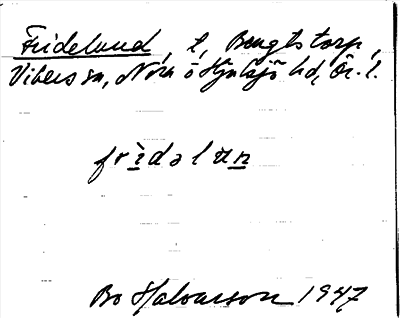 Fridelund, t, Bengtstorp,
Vibers sn, Nora o Hjulsjö hd, Ör. l.
fridəlun
Bo Halvarson 1947